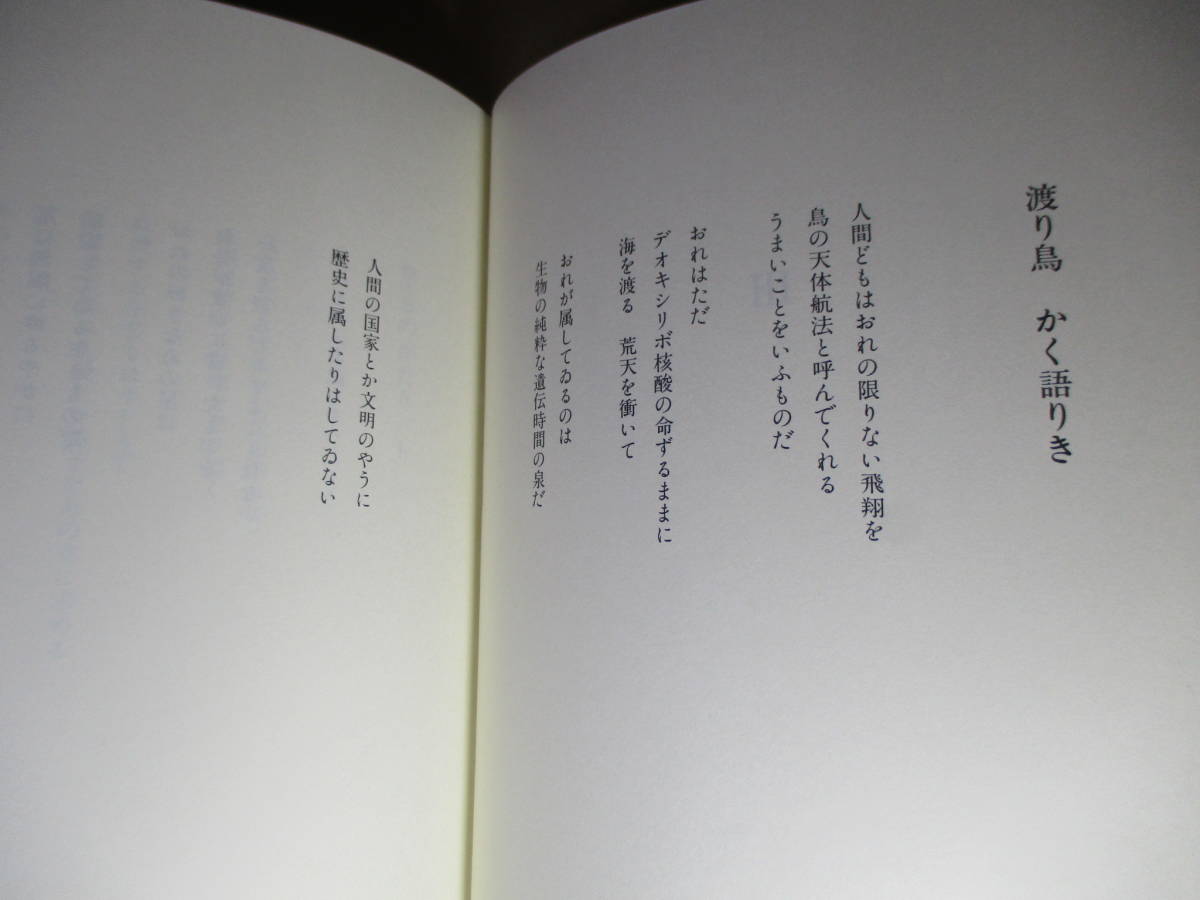 渡り鳥　かく語りき
人間どもはおれの限りない飛翔を
鳥の天体航法と呼んでくれる
うまいことをいふものだ
おれはただ
デオキシリボ核酸の命ずるままに
海を渡る　荒天を衝いて
おれが属してゐるのは
生物の純粋な遺伝時間の泉だ
人間の国家とか文明のやうに
歴史に属したりはしてゐない